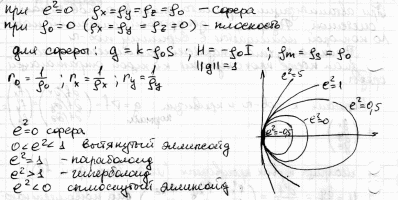 при e²=0 ρx=ρy=ρz=ρ0 – сфера
при ρ0=0 (ρx=ρy=ρz=0) – плоскость
для сферы: g=k-ρ0S ; H=-ρ0I ; ρm=ρs=ρ0
||g||=1
r0=1/ρ0 ; rx=1/ρx ; ry=1/ρy
e²=5
e²=1
e²=0,5
e²=0
e²=-0,5
e²=0 сфера
0<e²<1 вытянутый эллипсоид
e²=1 – параболоид
e²>1 – гиперболоид
e²<0 сплюснутый эллипсоид